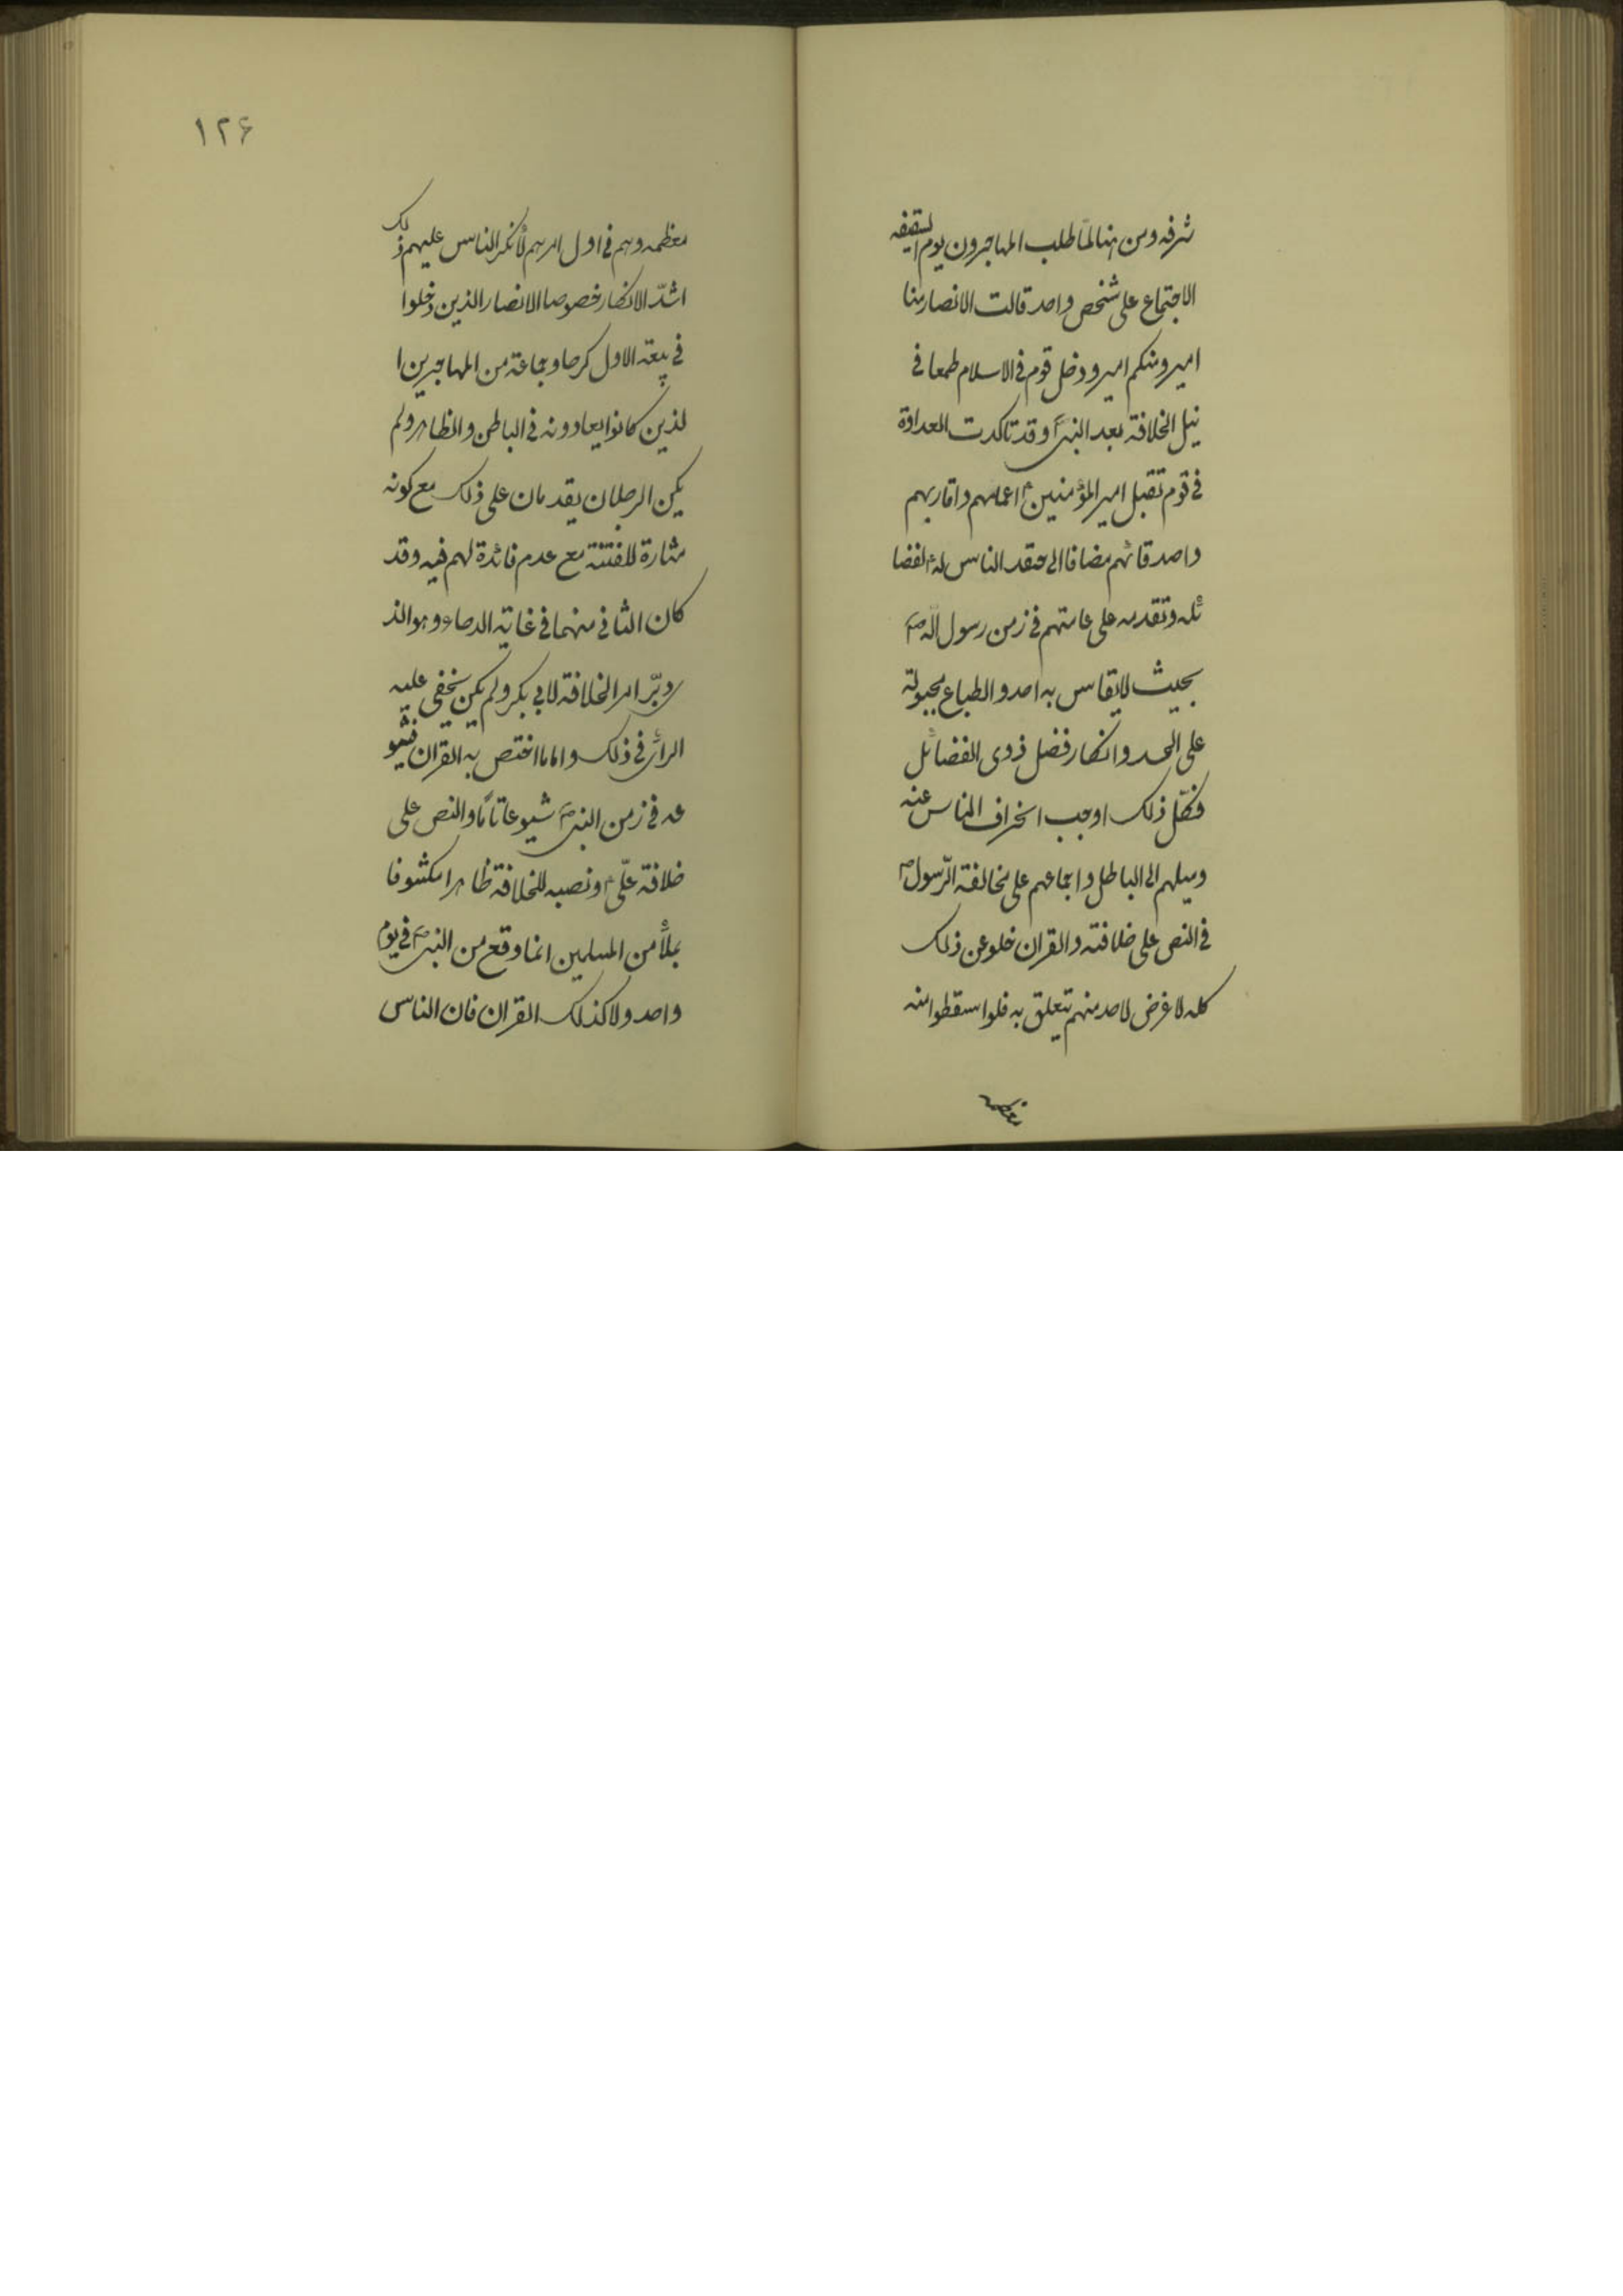 شرفه ومن هنا لما طلب المهاجرون يوم السقيفه
الاجتماع على شخص واحد قالت الانصار منا
امير ومنكم امير ودخل قوم فى الاسلام طمعا فى
نيل الخلافة بعد النبى ص وقد تاكدت العداوة
فى قوم تقبل امير المؤمنين ع اعمامهم واقاربهم
واصدقائهم مضافا الى معتقد الناس له الفضا
ئله وتقدمه على عامتهم فى زمن رسول الله ص
بحيث لا يقاس به احد والطباع مجبولة
على الحسد وانكار فضل ذوى الفضائل
فكل ذلك اوجب انحراف الناس عنه
وميلهم الى الباطل واجماعهم على مخالفة الرّسول ص
فى النص على خلافته والقران خلو عن ذلك
كله لا غرض لاحد منهم يتعلق به فلو اسقطوا منه
معظمه
١٢۶
معظمه وهم فى اول امرهم لأنكر الناس عليهم ذلك
اشدّ الانكار خصوصا الانصار الذين دخلوا
فى بيعة الاول كرها وجماعة من المهاجرين ا
لذين كانوا يعادونه فى الباطن والظاهر ولم
يكن الرجلان يقدمان على ذلك مع كونه
مثارة للفتنة مع عدم فائدة لهم فيه وقد
كان الثانى منهما فى غاية الدهاء وهو الذ
ى دبّر امر الخلافة لابى بكر ولم يكن يخفى عليه
الرأى فى ذلك واما ما اختص به القران فشيو
عه فى زمن النبى ص شيوعا تامّا والنص على
خلافة علىّ ع ونصبه للخلافة ظاهرا مكشوفا
بملأ من المسلمين انما وقع من النبى ص فى يوم
واحد ولا كذلك القران فان الناس